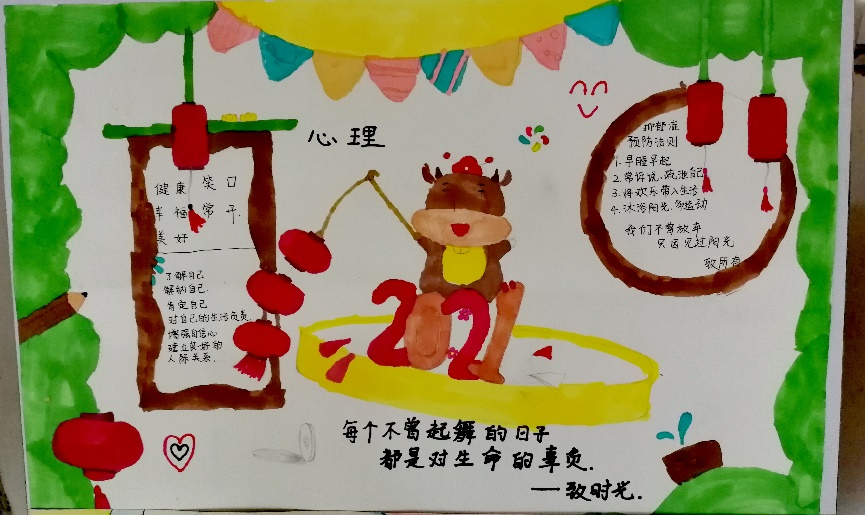 心理
健康 笑口
幸福 常开
美好
了解自己
解纳自己.
肯定自己
对自己的生活负责.
增强自信心
建立良好的
人际关系.
2021
抑郁症
预防法则
1.早睡早起
2.常诉说,疏泄自己
3.将欢乐带入生活
4.沐浴阳光,多运动
我们不言放弃
只因见过阳光
致所有
每个不曾起舞的日子
都是对生命的辜负.
——致时光.